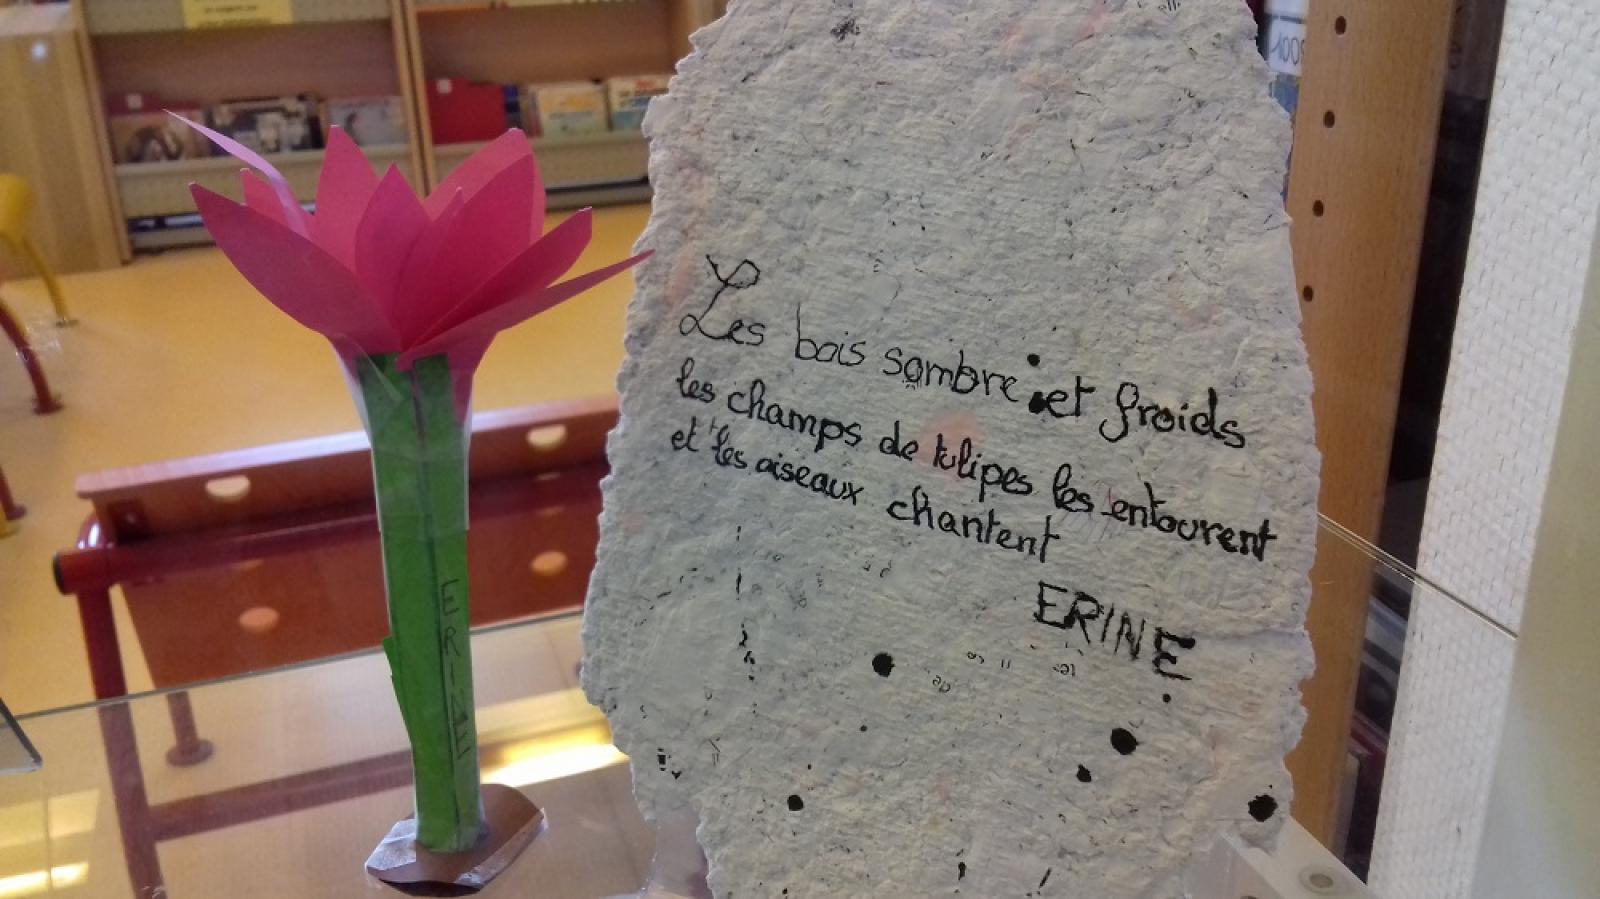 Les bois sombre et froids
les champs de tulipes les entourent
et les oiseaux chantent
ERINE
ERINE